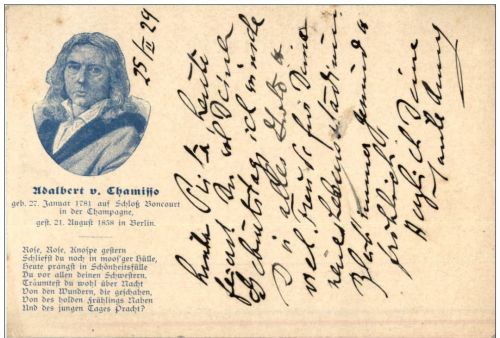 Adalbert v. Chamisso
geb. 27. Januar 1781 auf Schloß Boncourt
in der Champagne,
gest. 21. August 1838 in Berlin.
Rose, Rose, Knospe gestern
Schliefst du noch in moos'ger Hülle,
Heute prangst in Schönheitsfülle
Du vor allen deinen Schwestern.
Träumtest du wohl über Nacht
Von den Wundern, die geschahen,
Von des holden Frühlings Nahen
Und des jungen Tages Pracht?
25/II 29
heute
feierst Du
Geburtstag, ich wünsche
Dir alles Gute u.
viel Freude für Deine
neues Lebensstadium.
Bleib immer gesund u.
fröhlich.
Herzlich Deine
Tante Anny